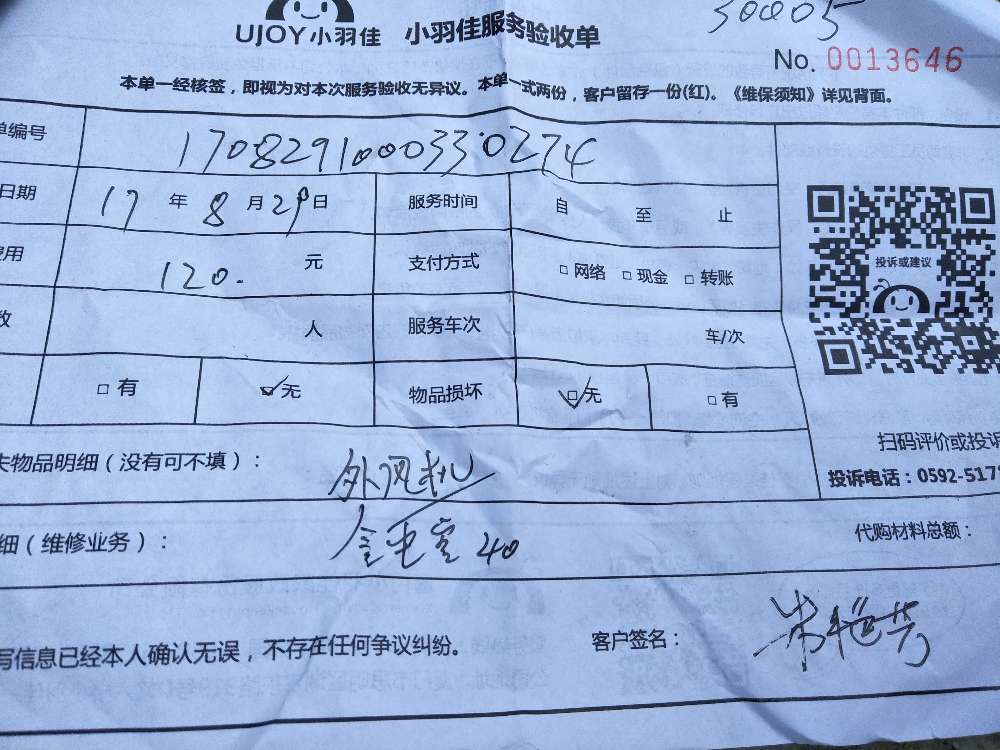 50005
UJOY小羽佳 小羽佳服务验收单
No. 0013646
本单一经核签，即视为对本次服务验收无异议。本单一式两份，客户留存一份(红)。《维保须知》详见背面。
单编号 170829100033027 4
日期 17 年 8 月 29 日 服务时间 自 至 止
费用 120. 元 支付方式 □网络 □现金 □转账
数 人 服务车次 车/次
□有 ☑无 物品损坏 ☑无 □有
投诉或建议
扫码评价或投诉
投诉电话：0592-517
失物品明细（没有可不填）： 外风机
细（维修业务）： 40
代购材料总额：
写信息已经本人确认无误，不存在任何争议纠纷。 客户签名：